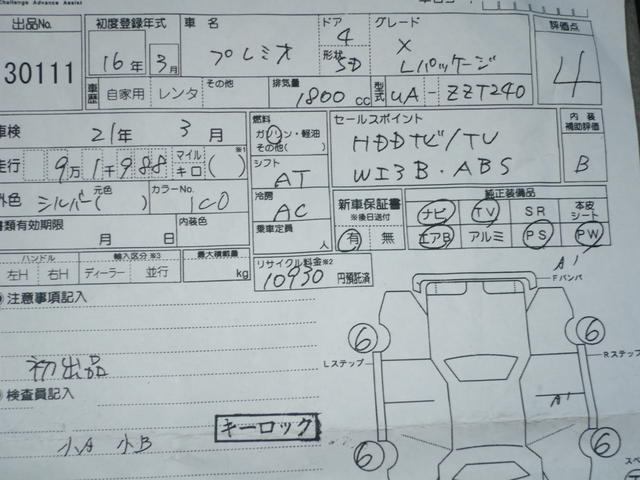 Challenge Advance Assist
出品No. 初度登録年式 車名 ドア グレード 評価点
30111 16年 3月 プレミオ 4 X 4
形状 5D Lパッケージ
車歴 自家用 レンタ その他 排気量 1800cc 型式 UA-ZZT240
車検 21年 3月 燃料 ガソリン・軽油 その他( ) セールスポイント 内装補助評価
走行 9万1千988 マイル キロ ( )※1 シフト AT HDDナビ/TV B
外色 シルバー 元色( ) カラーNo. 1C0 冷房 AC WエアB・ABS
書類有効期限 月 日 内装色 乗車定員 人 新車保証書 ※後日送付 有 無 純正装備品
ナビ TV SR 本皮シート
エアB アルミ PS PW
ハンドル 輸入区分※3 最大積載量 リサイクル料金※2
左H 右H ディーラー 並行 kg 10930 円預託済
注意事項記入 A1 Fバンパ
6 6
Lステップ Rステップ
初出品
検査員記入 A1
キーロック
小A 小B 6 6